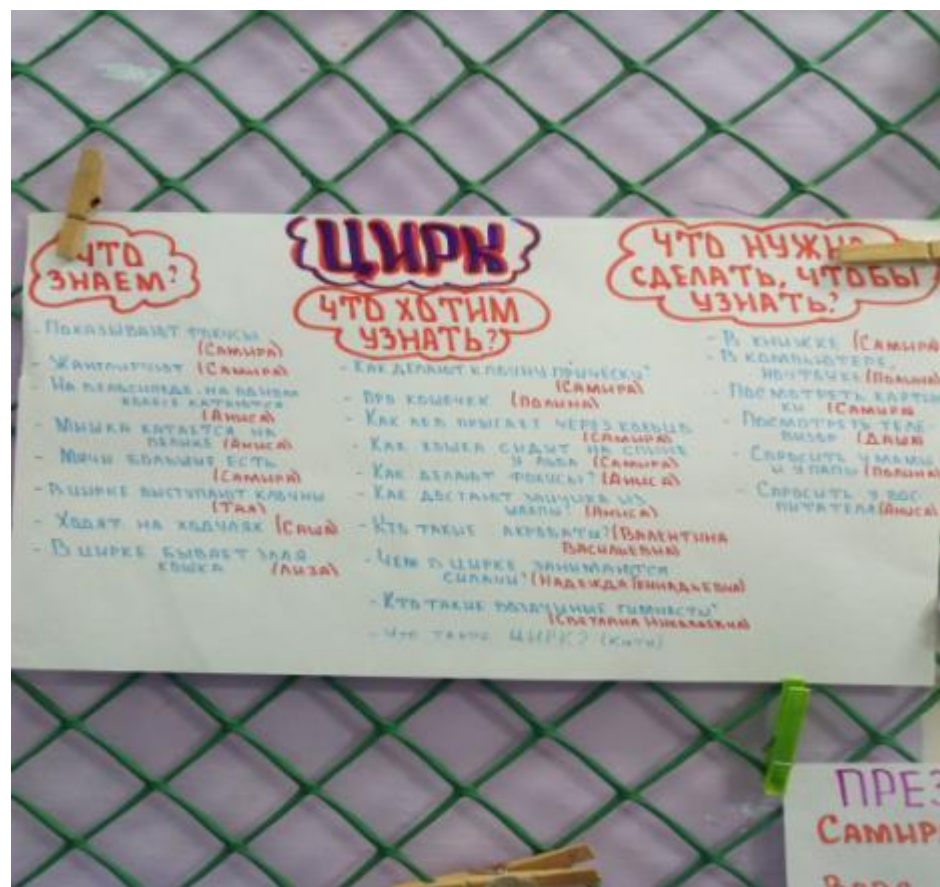 ЦИРК
ЧТО
ЗНАЕМ?
- Показывают фокусы
(Самира)
- Жонглируют (Самира)
- На велосипеде, на одном
колесе катаются
(Аниса)
- Мишка катается на
(Аниса)
- Мячи большие есть
(Самира)
- В цирке выступают клоуны
(Тая)
- Ходят на ходулях (Саша)
- В цирке бывает злая
кошка (Лиза)
ЧТО ХОТИМ
УЗНАТЬ?
- Как делают клоуну прическу?
(Самира)
- Про кошечек (Полина)
- Как лев прыгает через кольцо
(Самира)
- Как кошка сидит на спине
у льва (Самира)
- Как делают фокусы? (Аниса)
- Как достают зайчика из
шляпы? (Аниса)
- Кто такие акробаты? (Валентина
Васильевна)
- Чем в цирке занимаются
силачи? (Надежда Геннадьевна)
- Кто такие воздушные гимнасты?
(Светлана Николаевна)
- Что такое ЦИРК? (Катя)
ЧТО НУЖНО
СДЕЛАТЬ, ЧТОБЫ
УЗНАТЬ?
- В книжке (Самира)
- В компьютере,
ноутбуке (Полина)
- Посмотреть картин
ки (Самира)
- Посмотреть теле-
визор (Даша)
- Спросить у мамы
и у папы (Полина)
- Спросить у вос
питателя (Аниса)
ПРЕЗ
САМИР